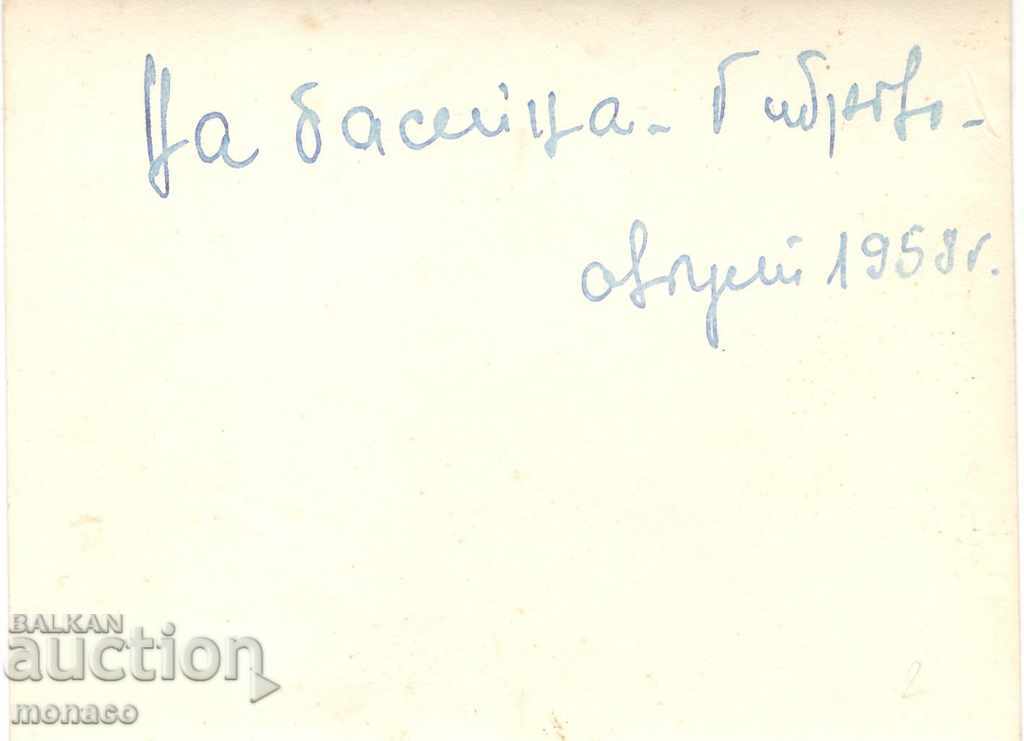 На басейна - Габрово -
август 1958 г.
BALKAN
auction
monaco
2